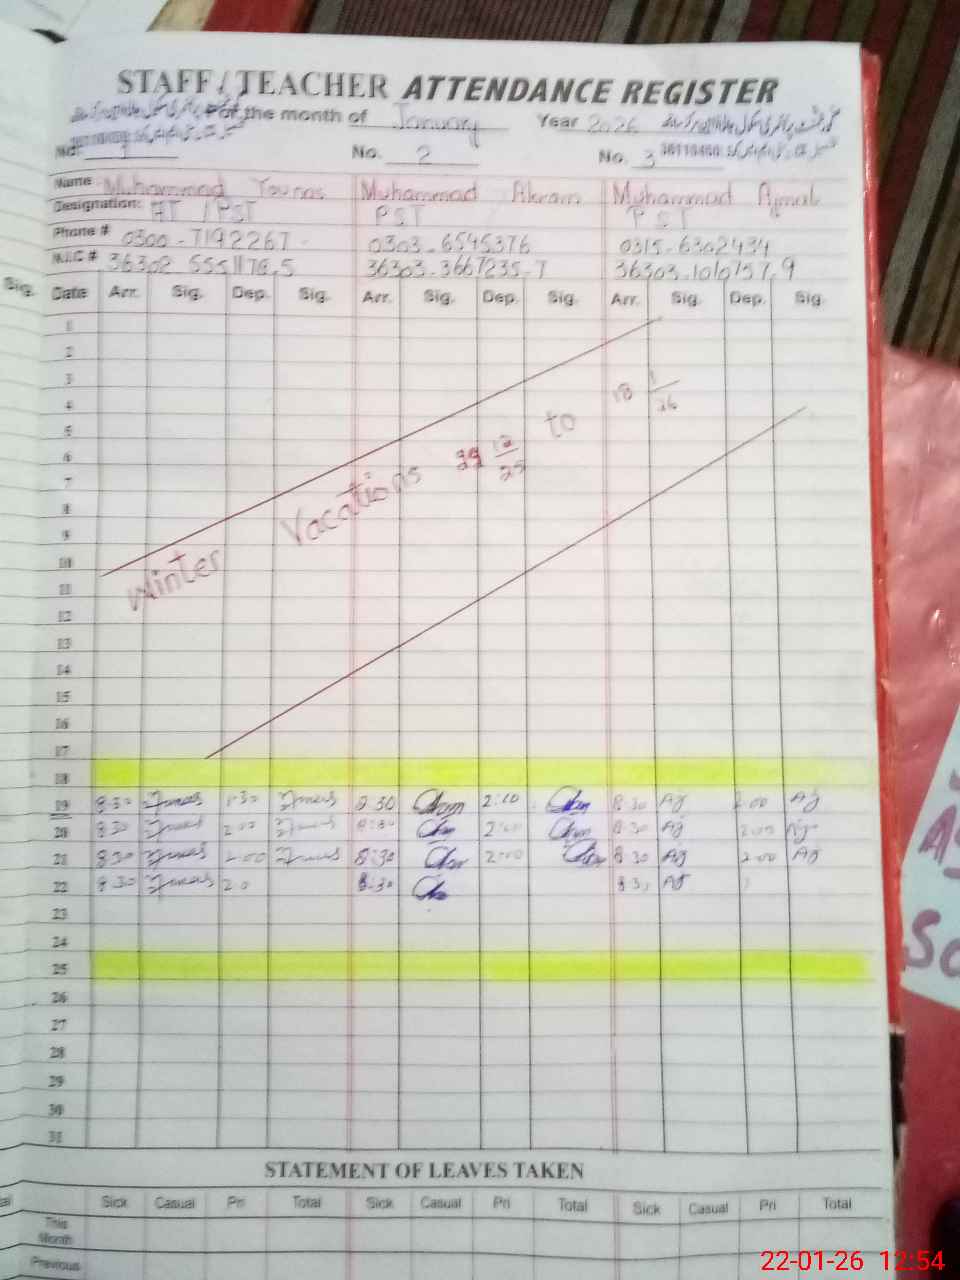 STAFF / TEACHER ATTENDANCE REGISTER
For the month of January Year 2026
No. No. 2 No. 3
Name Muhammad Younas Muhammad Akram Muhammad Ajmal
Designation: HT / PST PST PST
Phone # 0300-7192267 0303-6545376 0315-6302434
N.I.C # 36302 5551178,5 36303-3667235-7 36303-1010757,9
Sig. Date Arr. Sig. Dep. Sig. Arr. Sig. Dep. Sig. Arr. Sig. Dep. Sig.
1
2
3
4
5
6
7
8
9
10
11
12
13
14
15
16
17
Winter Vacations 12/25 to 18 1/26
18
19 8:30 Younas 1:30 Younas 8:30 2:00 8:30 Aj 2:00 Aj
20 8:30 Younas 2:00 Younas 8:30 2:00 8:30 Aj 2:00 Aj
21 8:30 Younas 2:00 Younas 8:30 2:00 8:30 Aj 2:00 Aj
22 8:30 Younas 2:0 8:30 8:3 Aj
23
24
25
26
27
28
29
30
31
STATEMENT OF LEAVES TAKEN
Sick Casual Pri Total Sick Casual Pri Total Sick Casual Pri Total
This Month
Previous
22-01-26 12:54